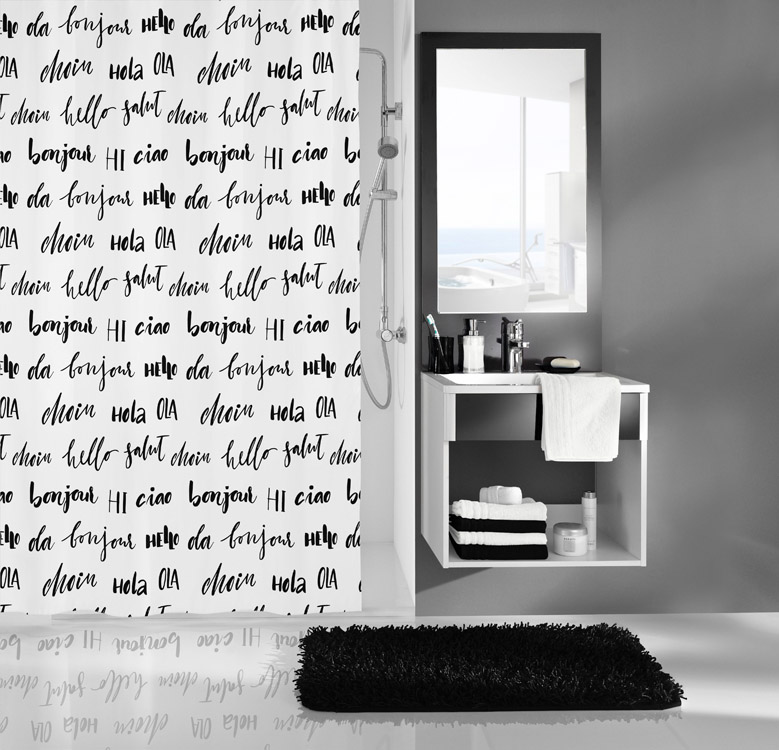 HELLO ola bonjour HELLO ola bonjour HELLO
OLA choin Hola OLA choin Hola OLA
choin hello salut choin hello salut choin
bonjour HI ciao bonjour HI ciao
HELLO ola bonjour HELLO ola bonjour HELLO
OLA choin Hola OLA choin Hola OLA
choin hello salut choin hello salut choin
bonjour HI ciao bonjour HI ciao
HELLO ola bonjour HELLO ola bonjour HELLO
OLA choin Hola OLA choin Hola OLA
choin hello salut choin hello salut choin
bonjour HI ciao bonjour HI ciao
HELLO ola bonjour HELLO ola bonjour HELLO
OLA choin Hola OLA choin Hola OLA